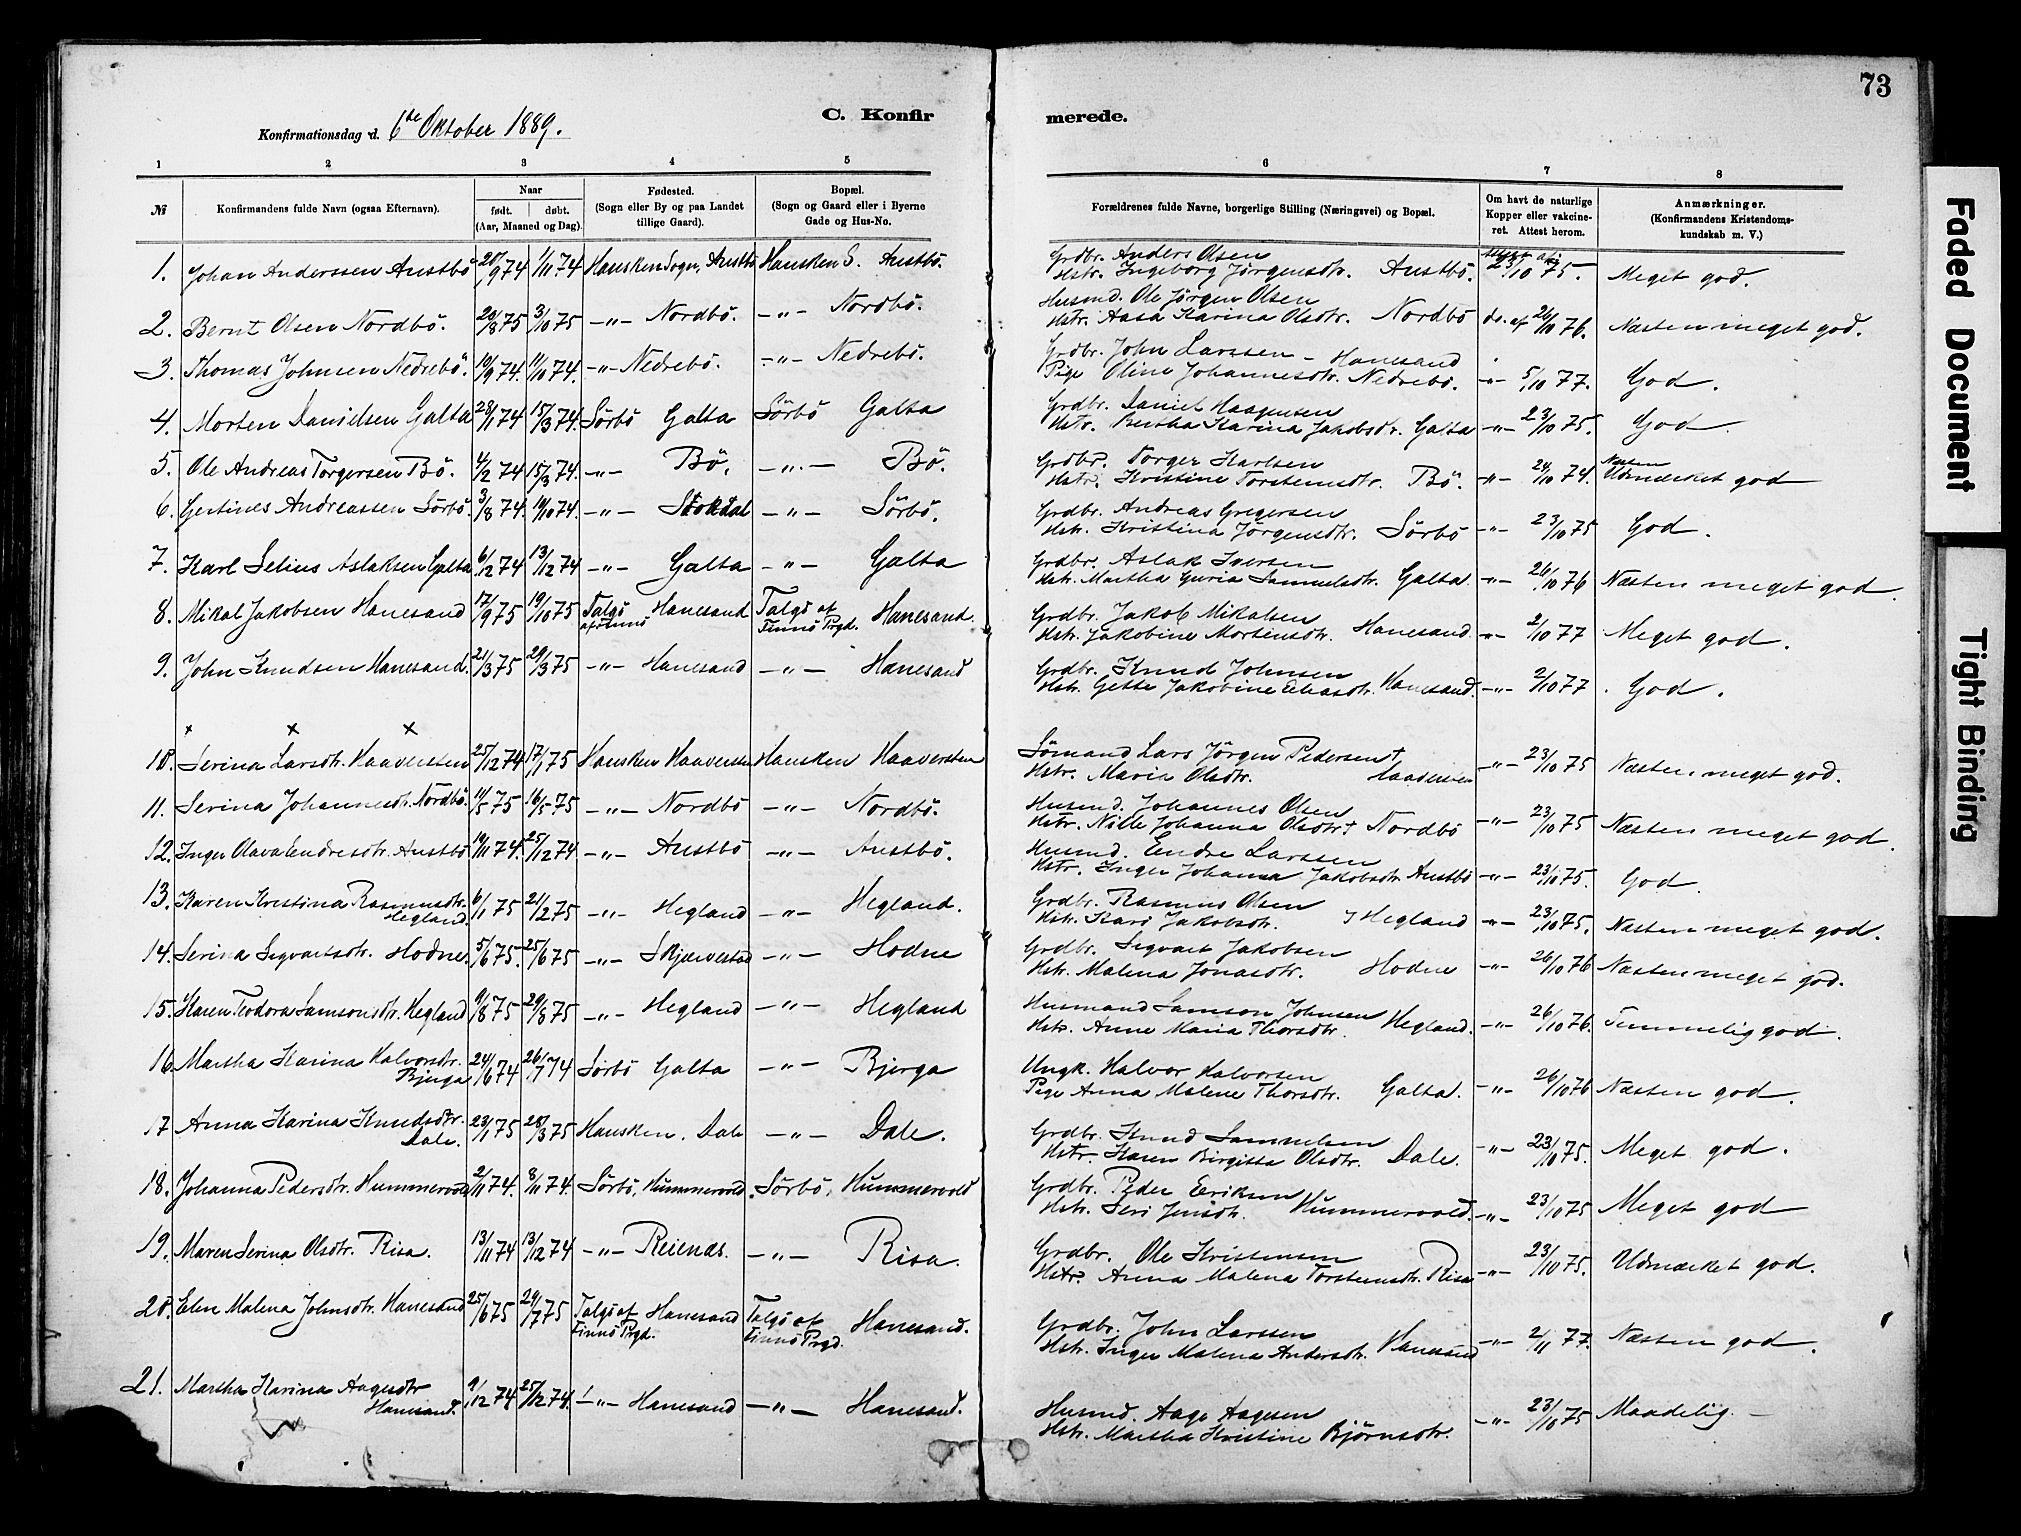 73
Konfirmationsdag d. 6te Oktober 1889.
C. Konfir merede.
1 2 3 4 5 6 7 8
№ Konfirmandens fulde Navn (ogsaa Efternavn). Naar født. døbt. (Aar, Maaned og Dag). Fødested. (Sogn eller By og paa Landet tillige Gaard). Bopæl. (Sogn og Gaard eller i Byerne Gade og Hus-No. Forældrenes fulde Navne, borgerlige Stilling (Næringsvei) og Bopæl. Om havt de naturlige Kopper eller vakcineret. Attest herom. Anmærkninger. (Konfirmandens Kristendomskundskab m. V.)
1. Johan Anderssen Austbö 20/9 74 1/11 74 Hausken Sogn, Austbö Hausken S. Austbö. Grdbr. Anders Olsen
Hstr. Ingeborg Jörgensdtr. Austbö. 23/10 75. Meget god.
2. Bernt Olsen Nordbö. 20/8 75 3/10 75 -"- Nordbö. -"- Nordbö. Husmd. Ole Jörgen Olsen
Hstr. Aasa Karina Olsdtr. Nordbö do. af 26/10 76. Næsten meget god.
3. Thomas Johnsen Nedrebö. 10/9 74. 11/10 74. -"- Nedrebö. -"- Nedrebö. Grdbr. John Larssen - Hanesand
Pige Oline Johannesdtr. Nedrebö. -"- 5/10 77. God.
4. Morten Danielsen Galta 28/1 74 15/3 74. Sörbö Galta Sörbö Galta Grdbr. Daniel Haagensen
Hstr. Bertha Karina Jakobsdtr. Galta -"- 23/10 75. God
5. Ole Andreas Torgersen Bö. 4/2 74 15/3 74. -"- Bö. -"- Bö. Grdbr. Torger Karlsen
Hstr. Kristine Torstensdtr. Bö. -"- 24/10 74. Næsten Udmærket god
6. Gertines Andreassen Sörbö. 3/8 74. 10/10 74. -"- Stokdal -"- Sörbö. Grdbr. Andreas Gregersen
Hstr. Kristina Jörgensdtr. Sörbö -"- 23/10 75 God.
7. Karl Selius Aslaksen Galta 6/12 74 13/12 74 -"- Galta -"- Galta Grdbr. Aslak Iversen
Hstr. Martha Guria Samuelsdtr. Galta. -"- 26/10 76 Næsten meget god.
8. Mikal Jakobsen Hanesand 17/9 75 19/10 75 Talgö af Finnö Hanesand Talgö af Finnö Prgd. Hanesand. Grdbr. Jakob Mikalsen
Hstr. Jakobine Mortensdtr. Hanesand. -"- 2/10 77 Meget god.
9. John Knudsen Hanesand. 21/3 75 29/3 75 -"- Hanesand -"- Hanesand Grdbr. Knud Johnsen
Hstr. Gette Jakobine Eliasdtr. Hanesand. -"- 2/10 77. God.
x x x
10. Serina Larsdtr. Haaversten 25/12 74 17/1 75 Hausken Haaversten Hausken Haaversten Sömand Lars Jörgen Pedersen †
Hstr. Maria Olsdtr. Haaversten -"- 23/10 75 Næsten meget god.
11. Serina Johannesdtr. Nordbö. 11/5 75 16/5 75 -"- Nordbö -"- Nordbö. Husmd. Johannes Olsen
Hstr. Nille Johanna Olsdtr † Nordbö -"- 23/10 75 Næsten meget god.
12. Inger Olava Endresdtr. Austbö 19/11 74. 25/12 74 -"- Austbö -"- Austbö. Husmd. Endre Larssen
Hstr. Inger Johanna Jakobsdtr Austbö -"- 23/10 75. God.
13. Karen Kristina Rasmusdtr. Hegland. 6/1 75 21/2 75 -"- Hegland -"- Hegland. Grdbr. Rasmus Olsen
Hstr. Kari Jakobsdtr. Hegland -"- 23/10 75. Næsten meget god.
14. Serina Sigvartsdtr. Hodne 5/6 75. 25/6 75 -"- Skjærvestad -"- Hodne Grdbr. Sigvart Jakobsen
Hstr. Malena Jonasdtr. Hodne -"- 26/10 76 Næsten meget god.
15. Karen Teodora Samsonsdtr. Hegland 9/8 75 29/8 75 -"- Hegland -"- Hegland Husmand Samson Johnsen
Hstr. Anne Maria Thorsdtr. Hegland. -"- 26/10 76. Temmelig god.
16. Martha Karina Halvorsdtr. Bjerga 24/6 74 26/7 74 Sörbö Galta -"- Bjerga Ungk. Halvor Halvorsen
Pige Anna Malene Thorsdtr. Galta. -"- 26/10 76 Næsten god.
17 Anna Karina Knudsdtr. Dale. 23/1 75 28/3 75 Hausken, Dale -"- Dale. Grdbr. Knud Samuelsen
Hstr. Karen Birgitta Olsdtr. Dale. -"- 23/10 75. Meget god.
18. Johanna Pedersdtr. Hummervold 2/11 74. 8/11 74. Sörbö, Hummervold. Sörbö, Hummervold Grdbr. Peder Eriksen
Hstr. Seri Jensdtr. Hummervold. -"- 23/10 75 Meget god
19. Maren Serina Olsdtr. Risa. 13/11 74 13/12 74 -"- Reienæs. -"- Risa. Grdbr. Ole Kristensen
Hstr. Anna Malena Torstensdtr. Risa -"- 23/10 75. Udmærket god.
20. Elen Malena Johnsdtr. Hanesand 25/6 75 24/7 75 Talgö af Finnö Prgd. Hanesand Talgö af Finnö Prgd. Hanesand. Grdbr. John Larssen
Hstr. Inger Malena Andersdtr. Hanesand -"- 2/11 77. Næsten god.
21. Martha Karina Aagesdtr Hanesand. 9/12 74 25/12 74. -"- Hanesand -"- Hanesand. Husmd. Aage Aagesen
Hstr. Martha Kristine Björnsdtr. -"- 23/10 75 Maadelig.
Faded Document
Tight Binding